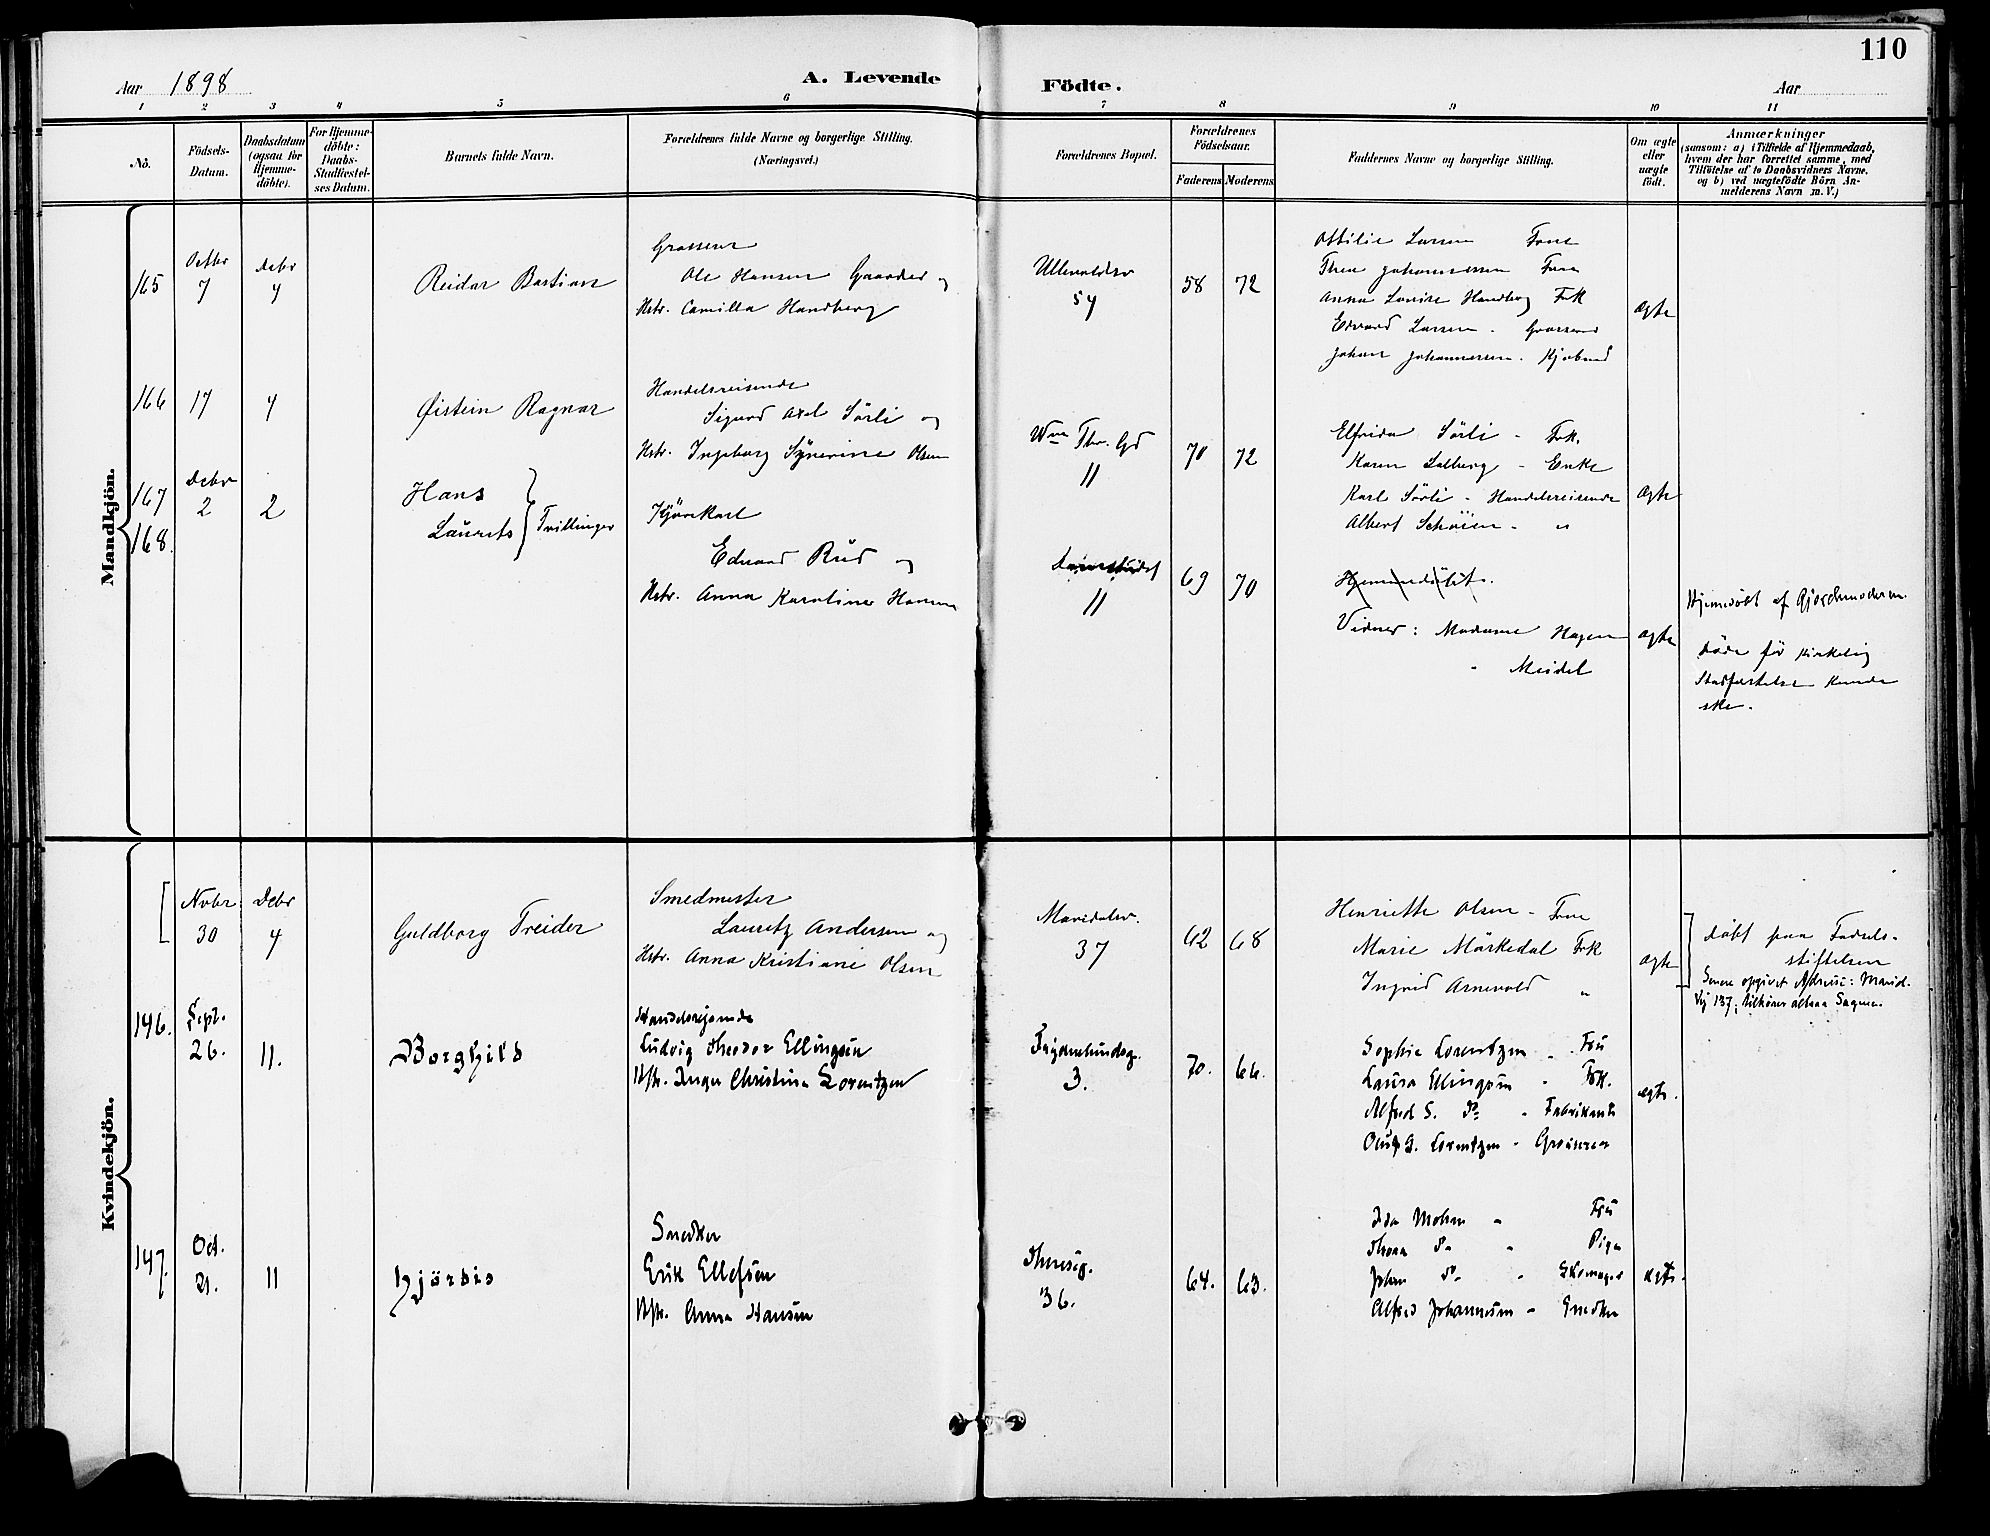 110
Aar 1898
A. Levende Födte.
Aar
1 2 3 4 5 6 7 8 9 10 11
No.
Födsels-Datum.
Daabsdatum (ogsaa for Hjemme-döbte).
For Hjemme-döbte: Daabs-Stadfæstel-ses Datum.
Barnets fulde Navn.
Forældrenes fulde Navne og borgerlige Stilling. (Næringsvei.)
Forældrenes Bopæl.
Forældrenes Födselsaar.
Faderens Moderens
Faddernes Navne og borgerlige Stilling.
Om ægte eller uægte födt.
Anmærkninger
(saasom: a) i Tilfælde af Hjemmedaab,
hvem der har forrettet samme, med
Tilföielse af to Daabsvidners Navne.
og b) ved uægtefödte Börn An-
melderens Navn m. V.)
Mandkjön.
165
Octbr 7
Debr 4
Reidar Bastian
Grosserer
Ole Hansen Gaarder og
Hstr. Camilla Handberg
Ullevoldsv
54
58 72
Ottilie Larsen Frue
Thea Johannessen Frue
Anna Louise Handberg Frk
Edvard Larsen - Grosserer
Johan Johannessen. Kjöbmd
ægte
166
17
4
Øistein Ragnar
Handelsreisende
Sigurd Axel Sörli og
Hstr. Ingeborg Synerine Olsen
Wm Thr. Gd
11
70 72
Elfrida Sörli - Frk.
Karen Solberg - Enke
Karl Sörli - Handelsreisende
Albert Schöien - "
ægte
167
168.
Debr 2
2
Hans
Laurits } Tvillinger
Kjörekarl
Edvard Rud og
Hstr. Anna Karoline Hansen
11
69 70
Hjemmedöbt.
Vidner: Madame Hagen
" Meidel
ægte
Hjemedöbt af Gjordemoderen.
döde för kirkelig
Stadfæstelse kunde
ske.
Kvindekjön.
Nvbr 30
Debr 4
Guldborg Treider
Smedmester
Lauritz Andersen og
Hstr. Anna Kristiane Olsen
Maridalsv.
37
62 68
Henriette Olsen - Frue
Marie Mörkedal Frk
Ingrid Arnevold "
ægte
döbt paa Födsels-
stiftelsen
Senere opgivet Adresse: Marid.
Vej 137; tilhörer altsaa Sagene.
146.
Sept. 26.
11.
Borghild
Handelsrejsende
Ludvig Theodor Ellingsen
Hstr. Inger Christina Lorentzen
Frydenlundsg.
3.
70. 66.
Sophie Lorentzen - Fru
Laura Ellingsen - Frk.
Alfred S. Do - Fabrikant
Oluf G. Lorentzen - Grosserer
ægte.
147.
Oct. 21.
11
Hjördis
Snedker
Erik Ellefsen
Hstr. Anna Hansen
Theresesg.
36.
64. 63.
Ida Mohn - Fru
Thora Do - Pige
Johan Do - Skomager
Alfred Johannesen - Snedker
ægte.